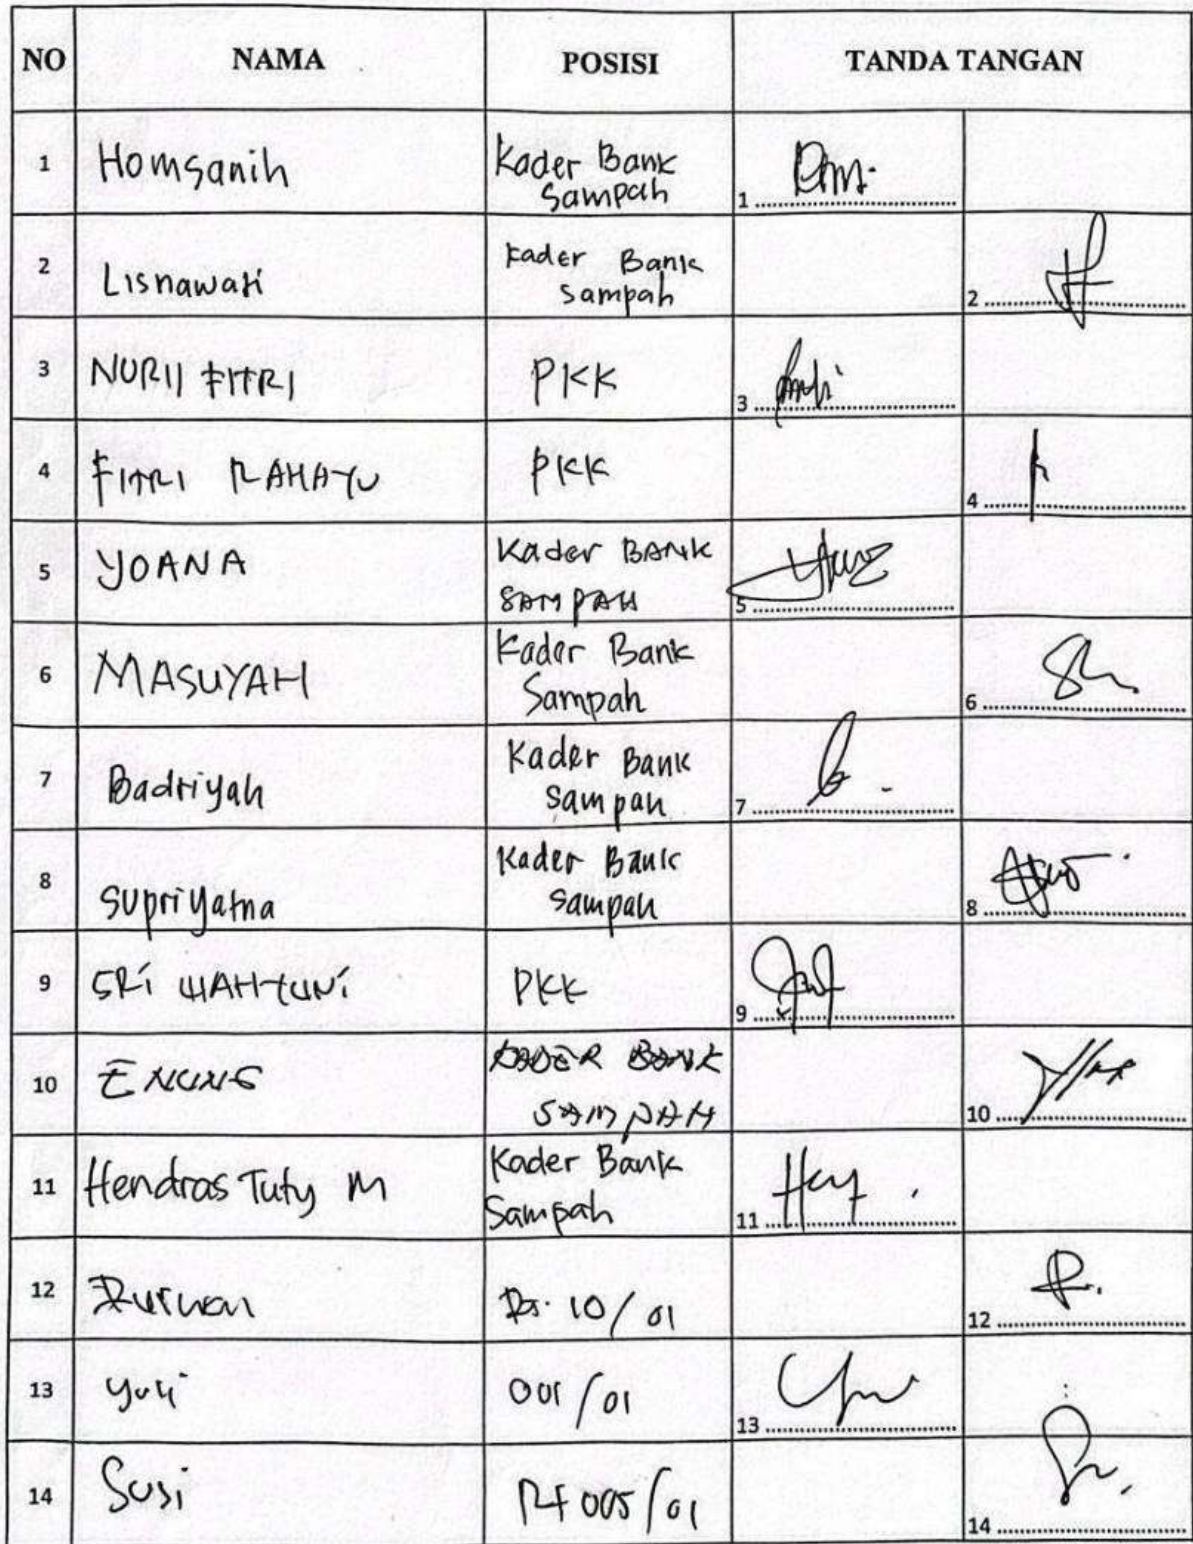 NO NAMA POSISI TANDA TANGAN
1 Homsanih Kader Bank
Sampah
1
2 Lisnawati Kader Bank
Sampah
2
3 NURII FITRI PKK
3
4 FITRI RAHAYU PKK
4
5 YOANA Kader BANK
SAMPAH
5
6 MASUYAH Kader Bank
Sampah
6
7 Badriyah Kader Bank
Sampah
7
8 Supriyatna Kader Bank
Sampah
8
9 SRI WAHYUNI PKK
9
10 ENUNG KADER BANK
SAMPAH
10
11 Hendras Tuty M Kader Bank
Sampah
11
12 10/01
12
13 Yuli 001/01
13
14 Susi RT 005/01
14